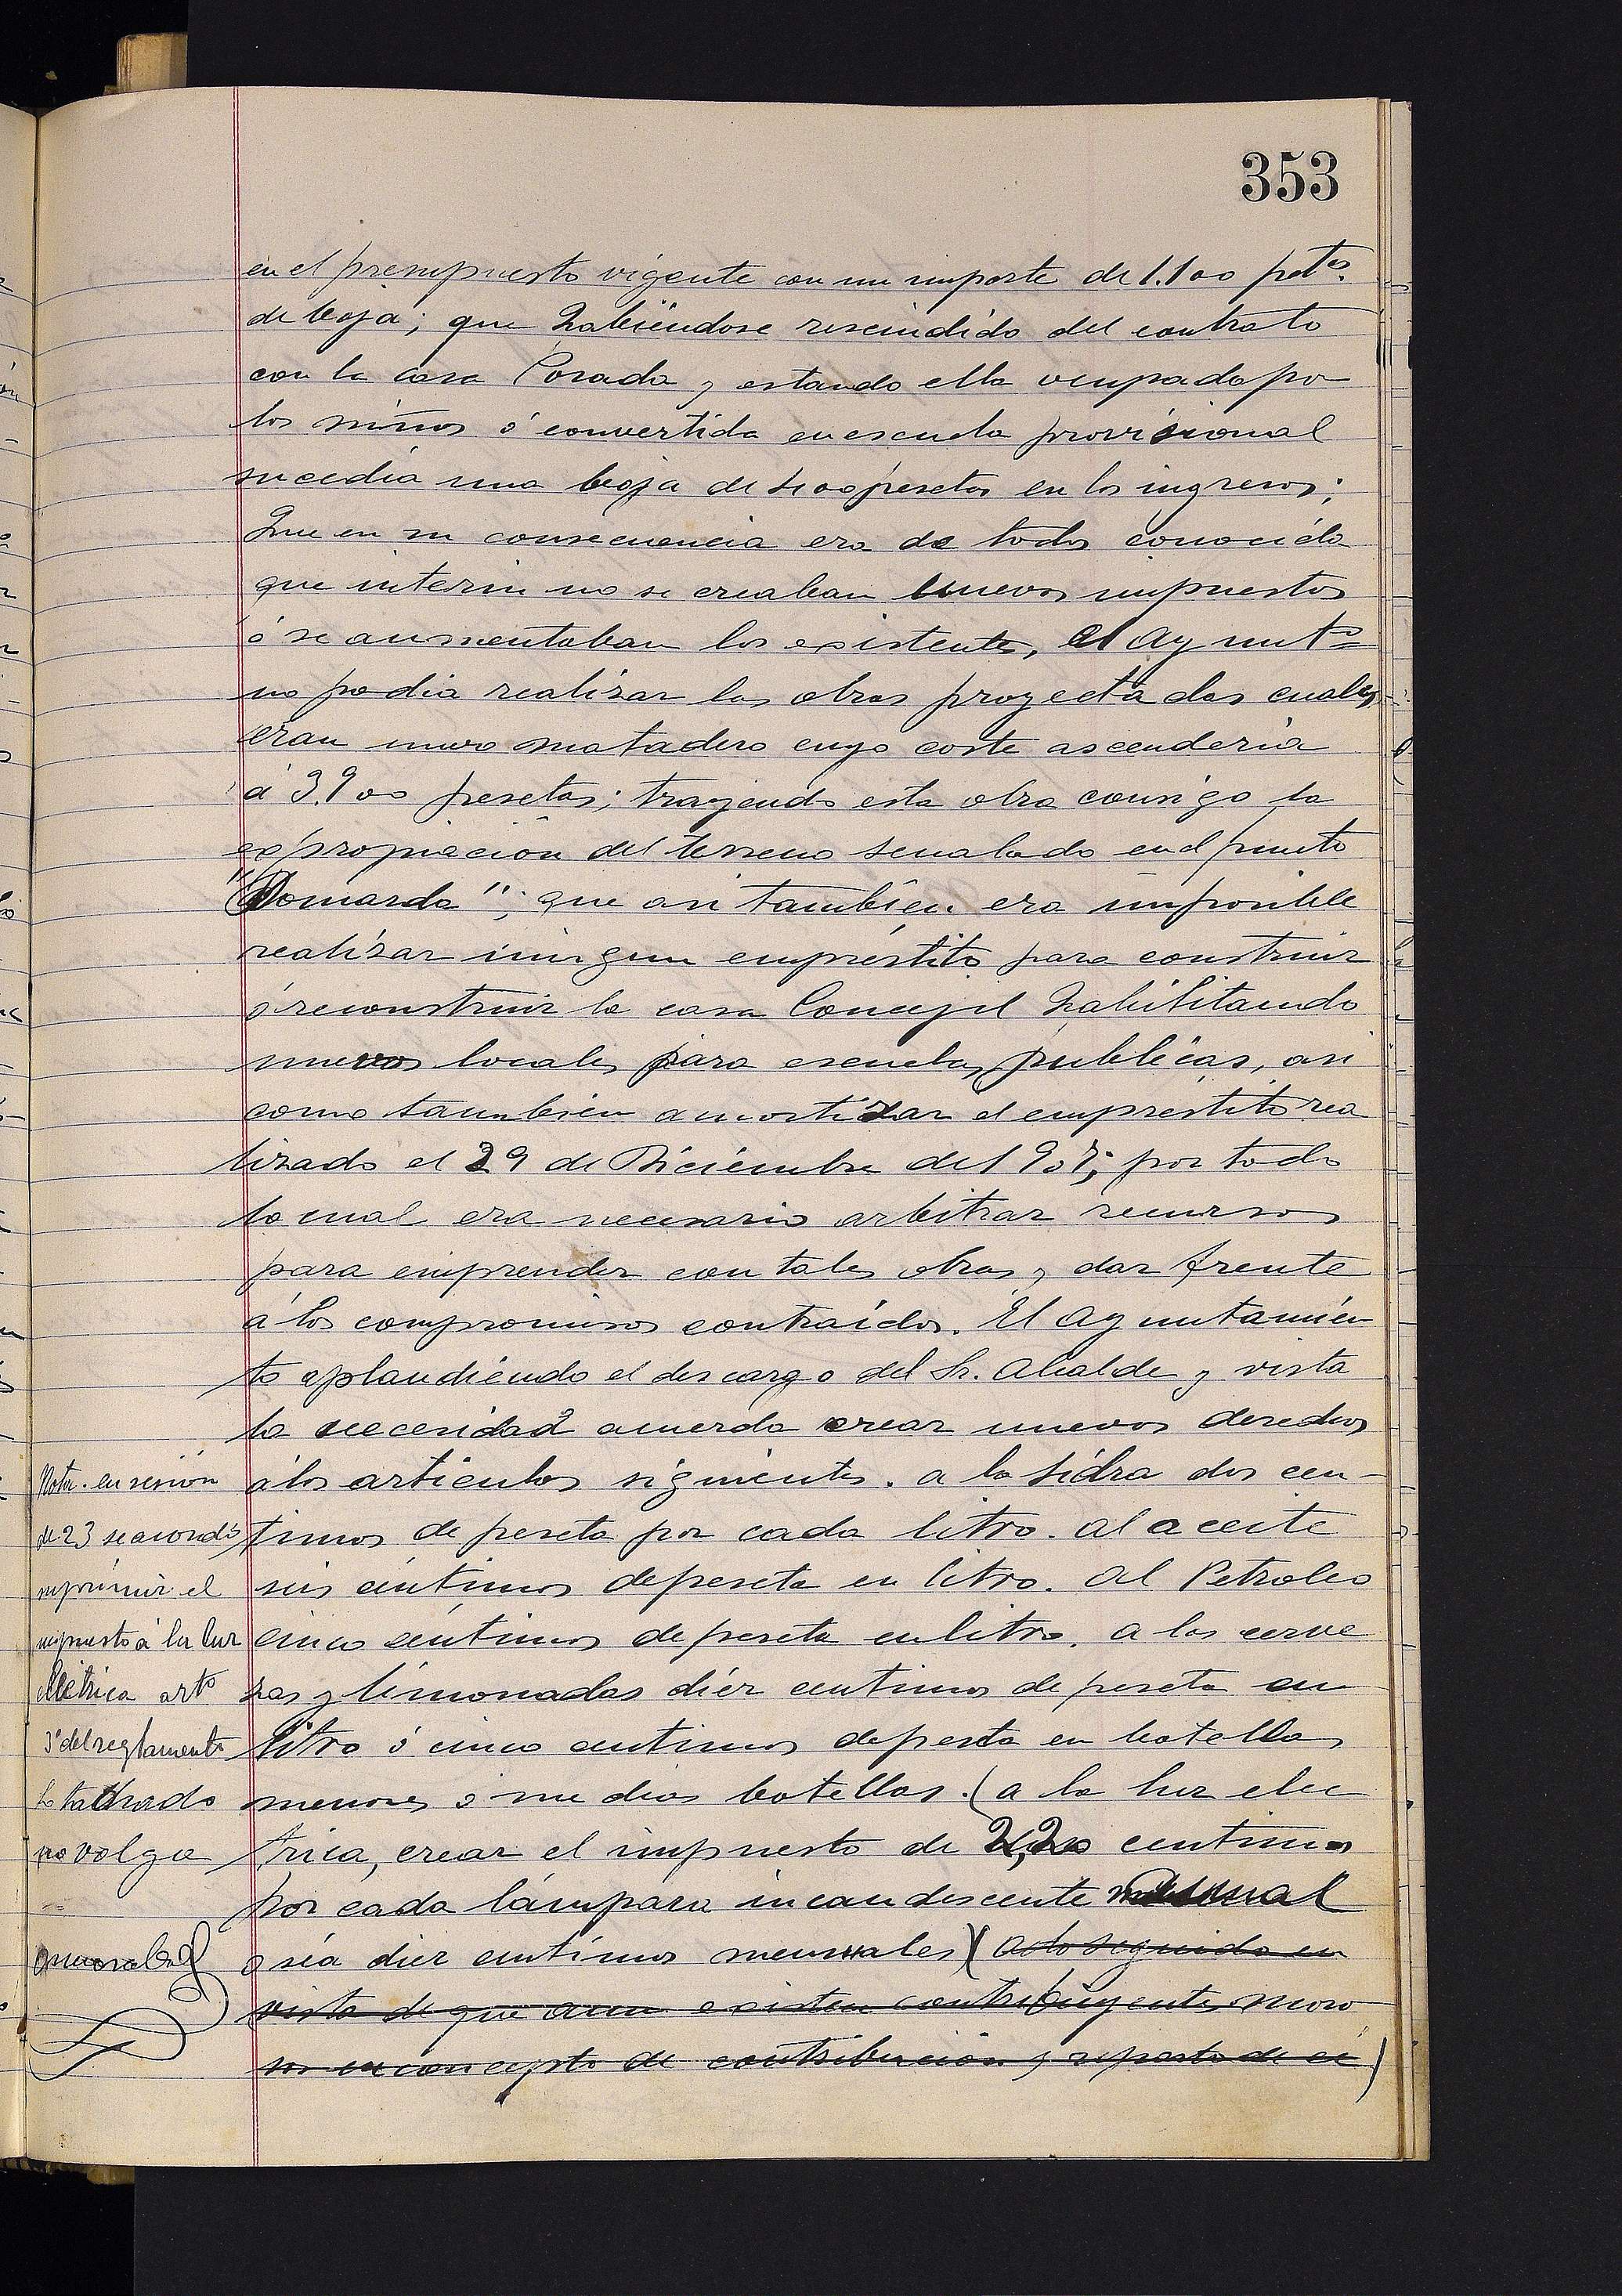 353
en el presupuesto vigente con un importe de 1.100 ptas.
de baja; que habiéndose rescindido del contrato
con la casa Posada y estando ella ocupada por
los niños ó convertida en escuela provisional
sucedia una baja de 400 pesetas en los ingresos;
Que en su consecuencia era de todos conocido
que interin no se creaban nuevos impuestos
ó se aumentaban los existentes, el Ayuntº
no podia realizar las obras proyectadas cuales
eran nuevo matadero cuyo coste ascenderia
á 3.900 pesetas; trayendo esta obra consigo la
expropiación del terreno señalado en el punto
" "; que asi también era imposible
realizar ningun empréstito para construir
ó reconstruir la casa Concejil habilitando
nuevos locales para escuelas publicas, asi
como tambien amortizar el empréstito rea
lizado el 29 de Diciembre del 907; por todo
lo cual era necesario arbitrar recursos
para emprender con tales obras y dar frente
á los compromisos contraídos. El Ayuntamien
to aplaudiendo el descargo del Sr. Alcalde y vista
la necesidad acuerda crear nuevos derechos
á los articulos siguientes. a la sidra dos cen-
timos de peseta por cada litro. al aceite
seis céntimos de peseta en litro. al Petroleo
cinco céntimos de peseta en litro. a las cerve
zas y limonadas diez centimos de peseta en
litro ó cinco centimos de peseta en botellas
menores ó medias botellas. (a la luz elec
trica, crear el impuesto de centimos
por cada lámpara incandescente
o sea diez centimos mensuales)( acto seguido en
vista de que aun existen contribuyentes moro
sos en concepto de contribución y reparto de ci)
Nota. en sesión
de 23 se acordó
suprimir el
impuesto á la luz
eléctrica artº
3º del reglamento
Lo tachado
no valga